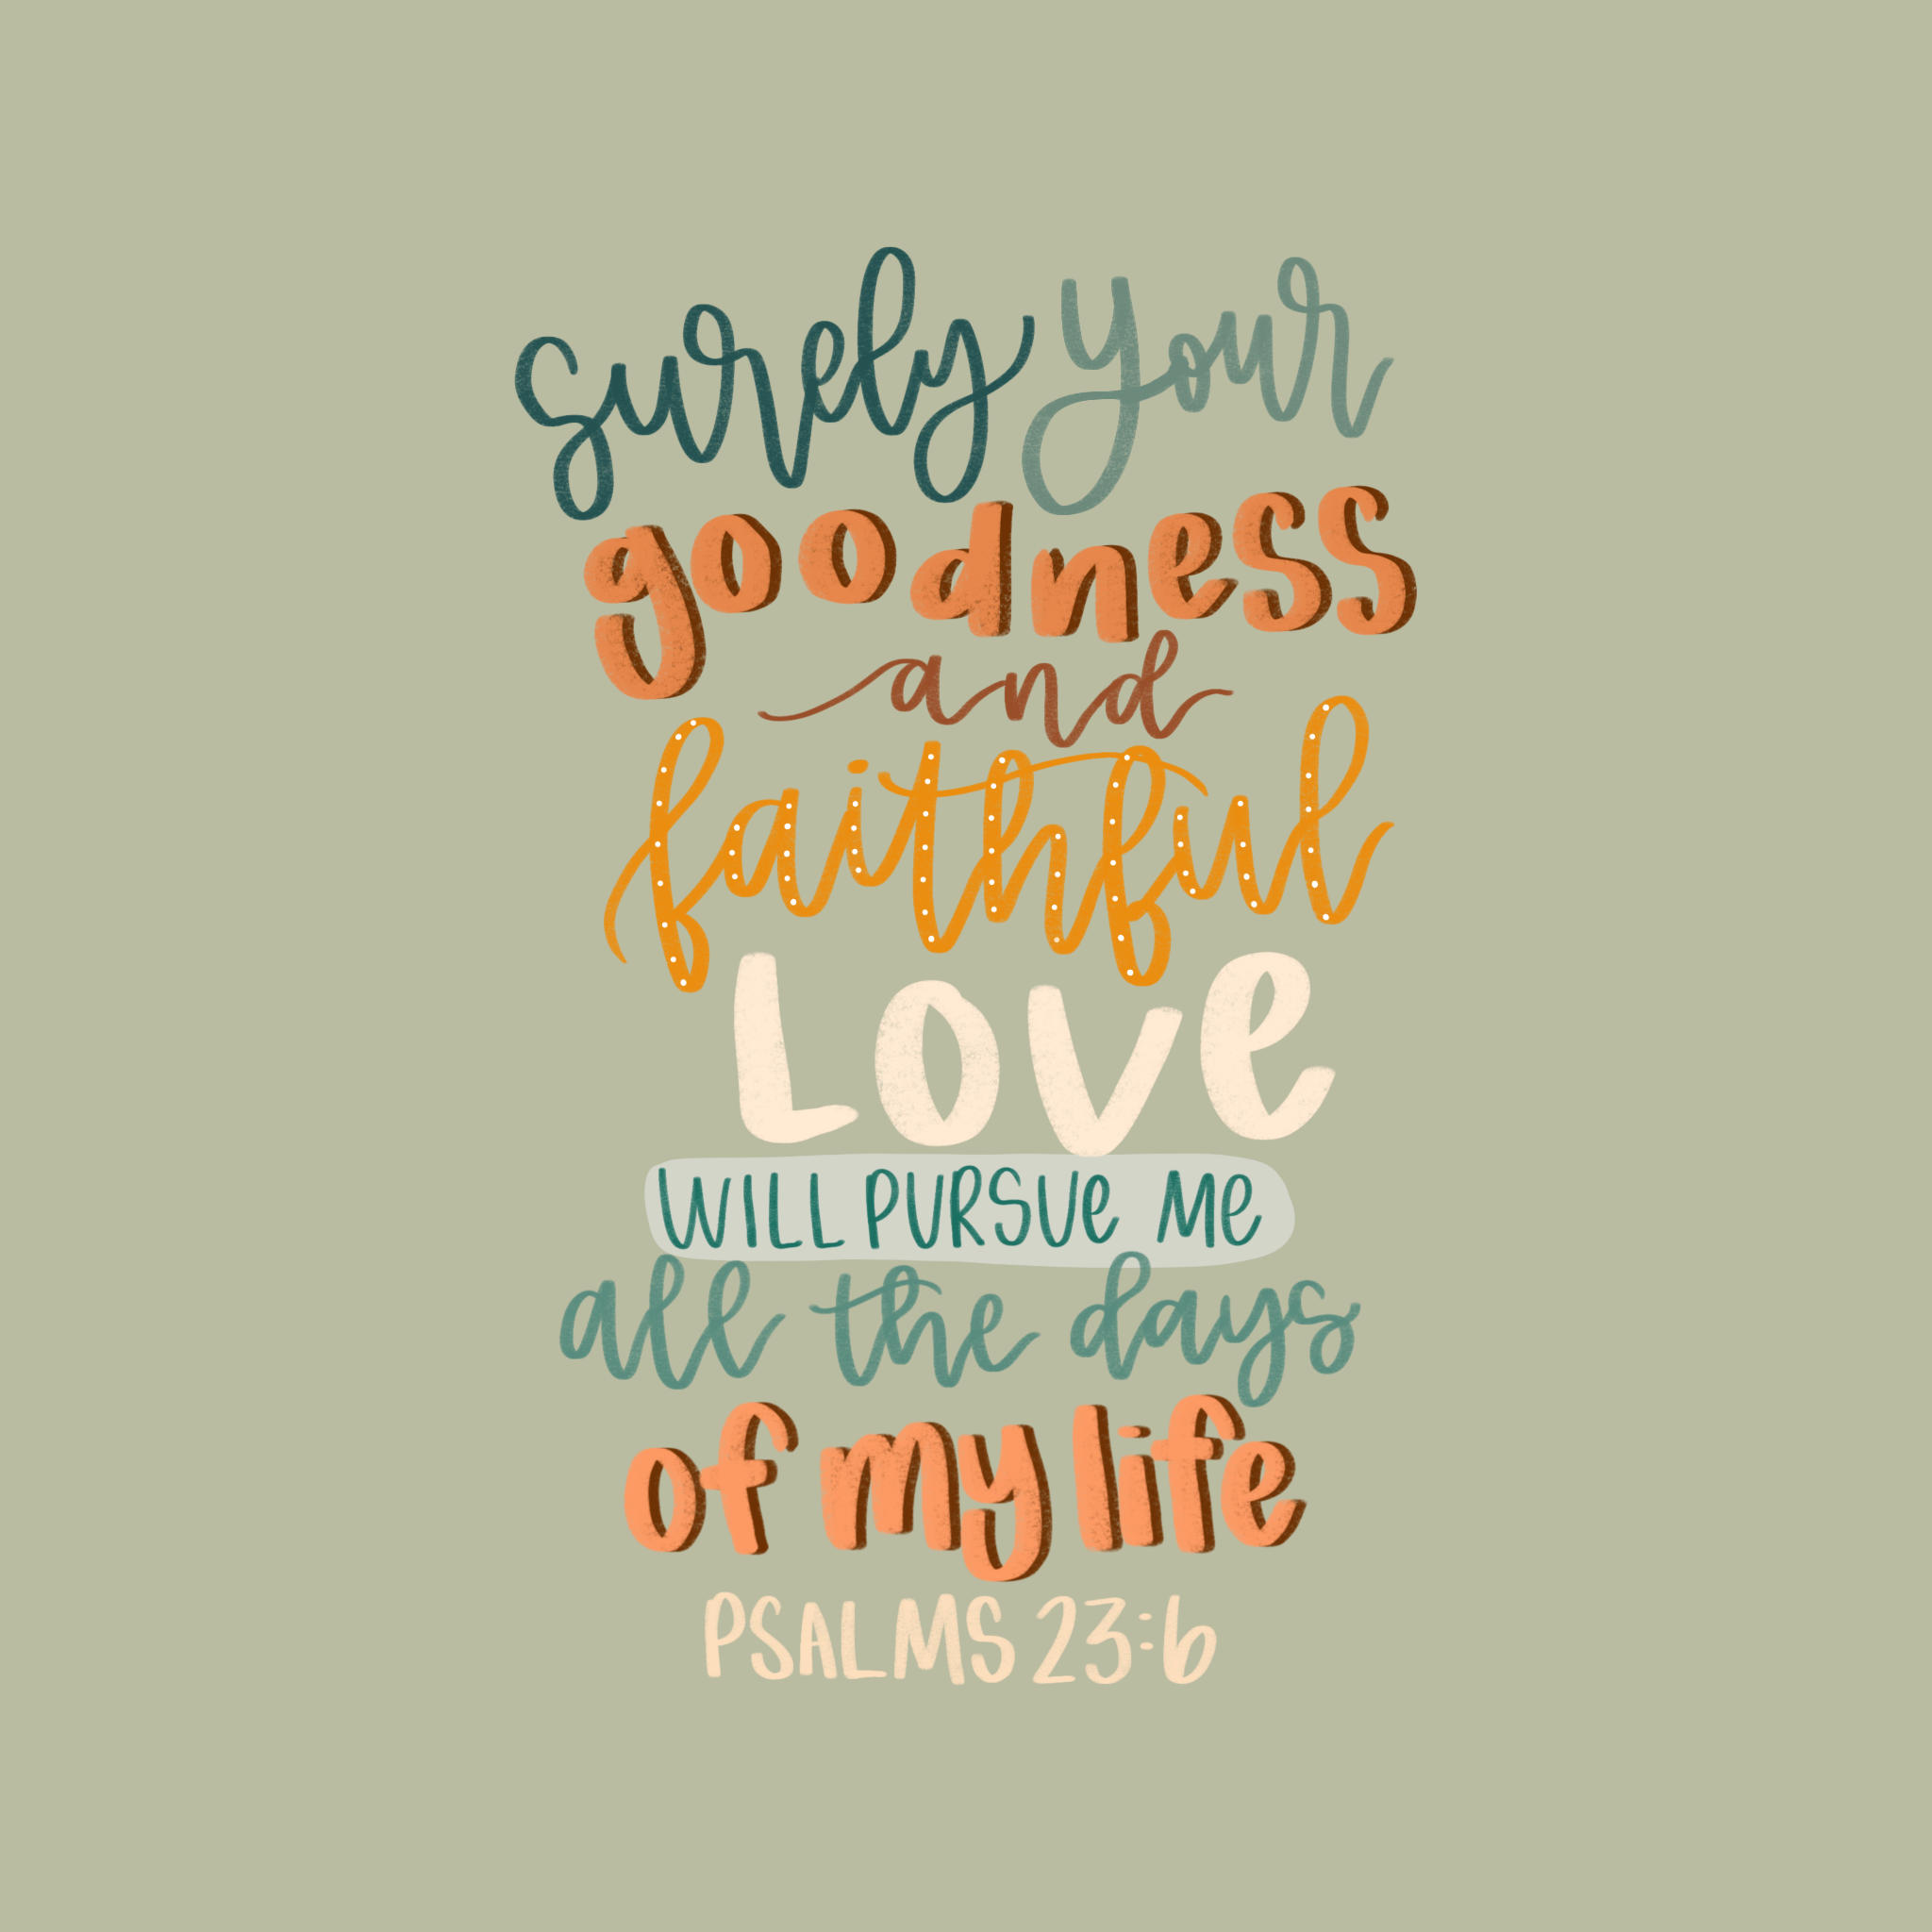 surely your
goodness
and
faithful
Love
WILL PURSUe Me
all the days
of my life
PSALMS 23:6